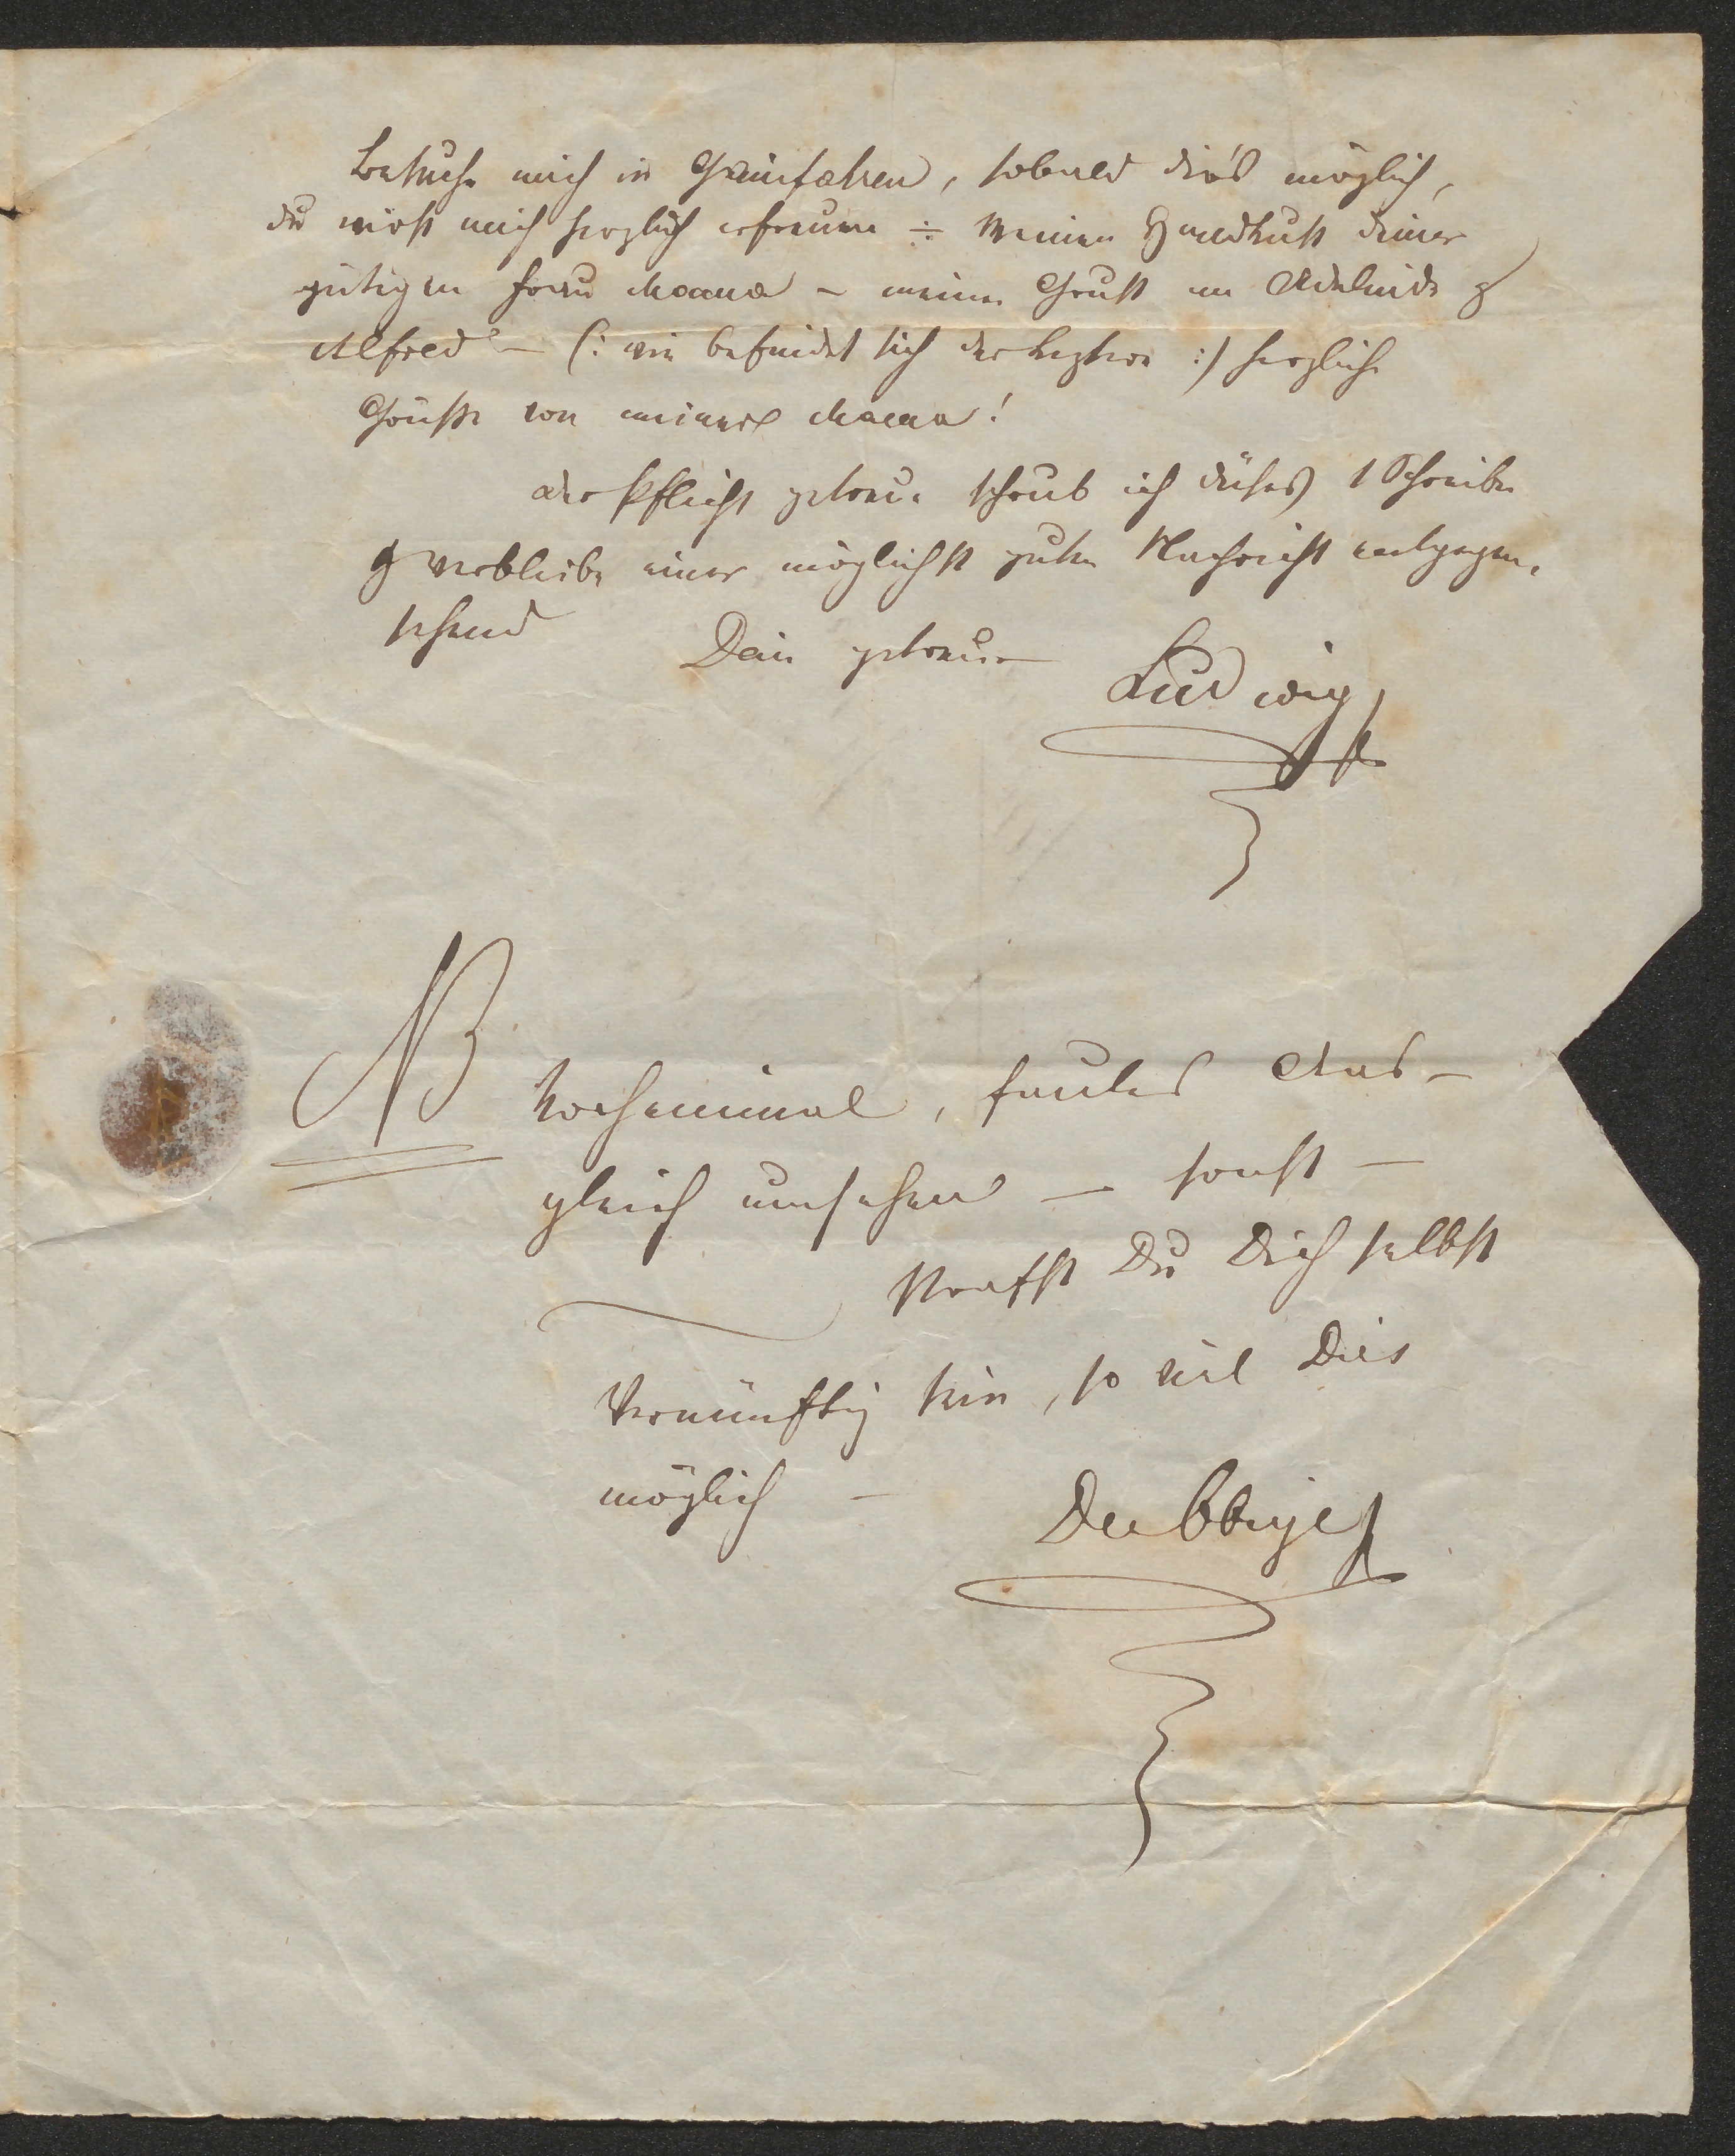 Besuche mich in Gainfahren, sobald dies möglich,
du wirst mich herzlich erfreuen ÷ Meinen Handkuß deiner
gütigen Frau Mama – meinen Gruß an Adelaide &
Alfred – (: wie befindet sich der Leztere :) herzliche
Grüße von meiner Mama!
der Pflicht getreu schrieb ich dieses 1 Schreiben
& verbleibe einer möglichst guten Nachricht entgegen,
sehend
Dein getreuer
Ludwig
NB
Nocheinmal, faules Aas –
gleich umsehen – sonst –
strafst Du Dich selbst
Vernünftig sein, so viel Dies
möglich –
Der Obige